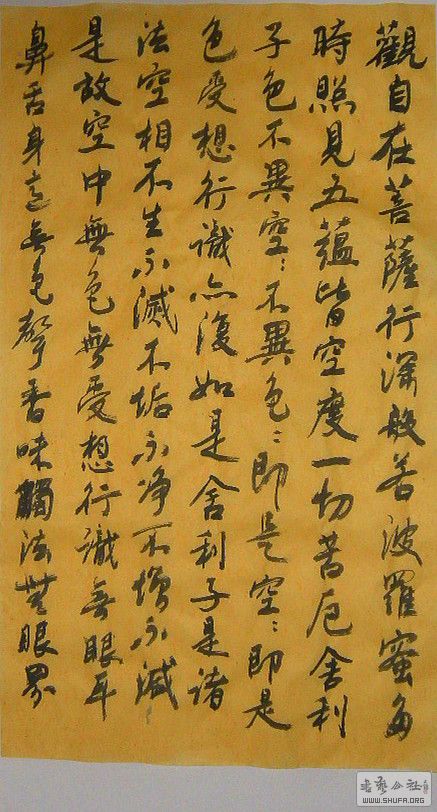 觀自在菩薩行深般若波羅蜜多
時照見五蘊皆空度一切苦厄舍利
子色不異空〻不異色〻即是空〻即是
色受想行識亦復如是舍利子是諸
法空相不生不滅不垢不净不增不減
是故空中無色無受想行識無眼耳
鼻舌身意無色聲香味觸法無眼界
WWW.SHUFA.ORG